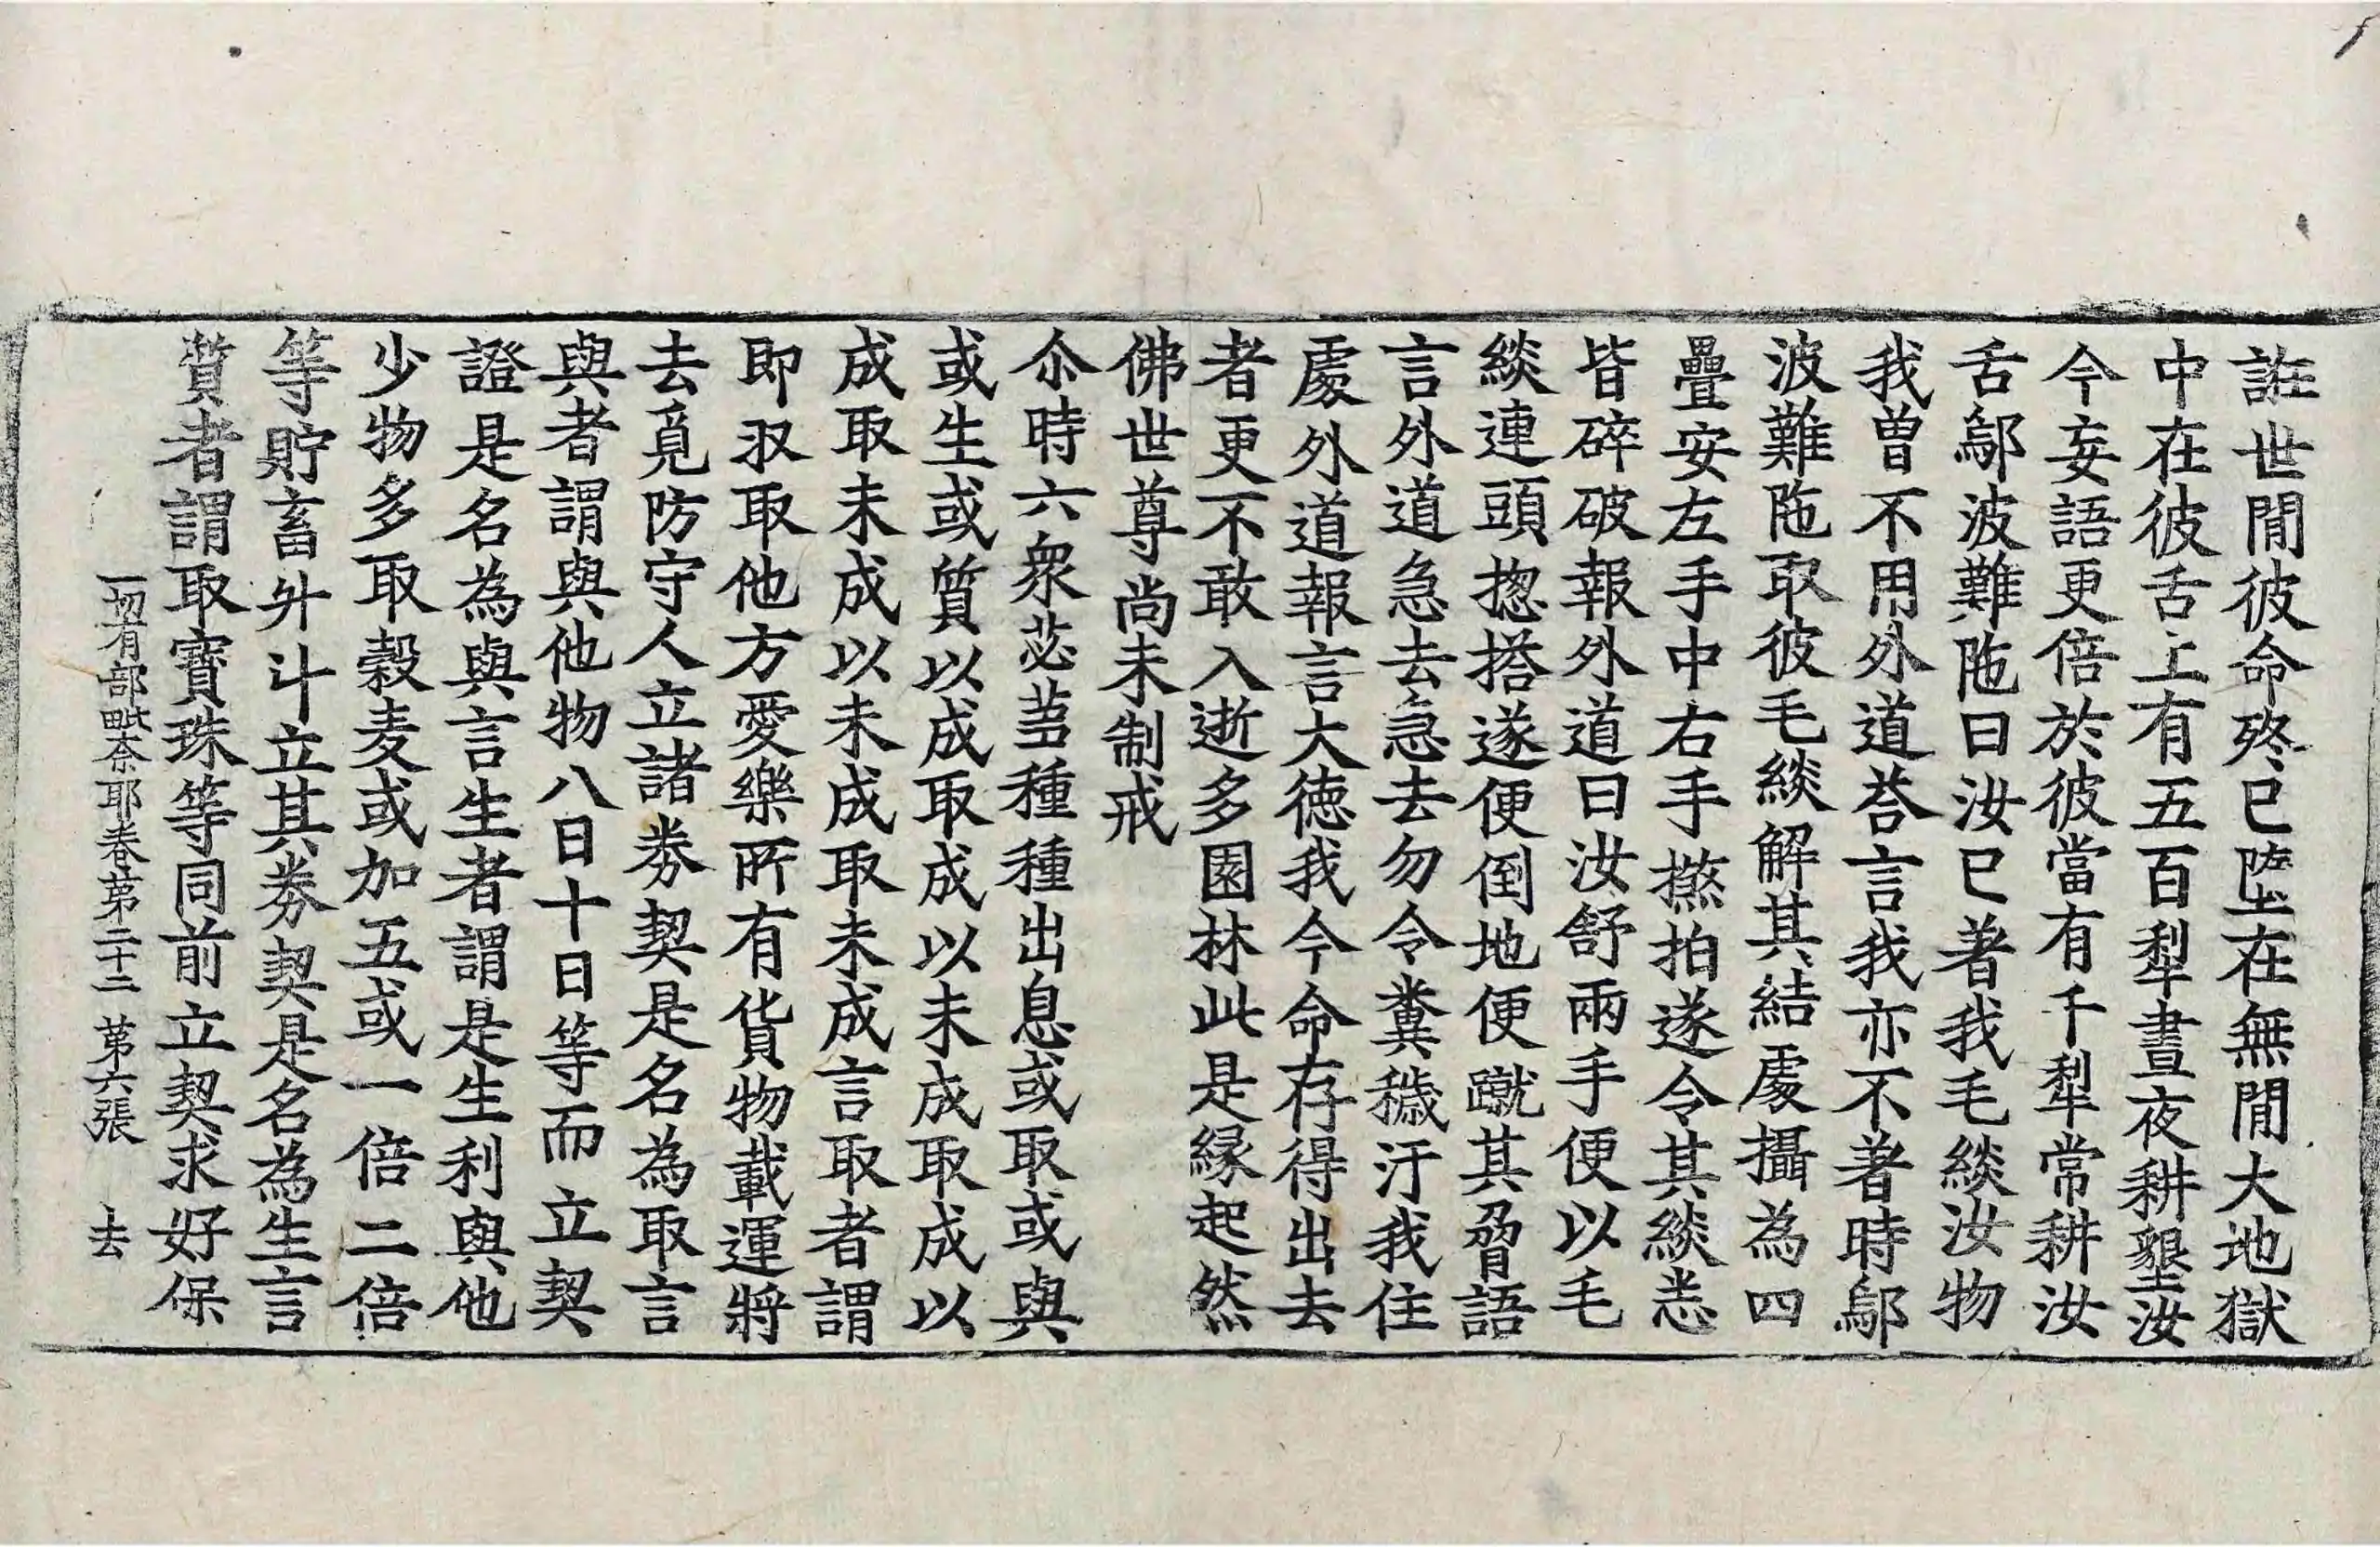 誑世閒彼命終已墮在無閒大地獄
中在彼舌上有五百犁晝夜耕墾汝
今妄語更倍於彼當有千犁常耕汝
舌鄔波難陁曰汝已著我毛緂汝物
我曾不用外道荅言我亦不著時鄔
波難陁取彼毛緂解其結處攝為四
疊安左手中右手撚拍遂令其緂悉
皆碎破報外道曰汝舒兩手便以毛
緂連頭揔搭遂便倒地便蹴其脅語
言外道急去急去勿令糞穢汙我住
處外道報言大德我今命存得出去
者更不敢入逝多園林此是緣起然
佛世尊尚未制戒
尒時六衆苾蒭種種出息或取或與
或生或質以成取成以未成取成以
成取未成以未成取未成言取者謂
即収取他方愛樂所有貨物載運將
去覓防守人立諸券契是名為取言
與者謂與他物八日十日等而立契
證是名為與言生者謂是生利與他
少物多取穀麦或加五或一倍二倍
等貯畜升斗立其券契是名為生言
質者謂取寶珠等同前立契求好保
一切有部毗奈耶卷第二十二 第六張 去